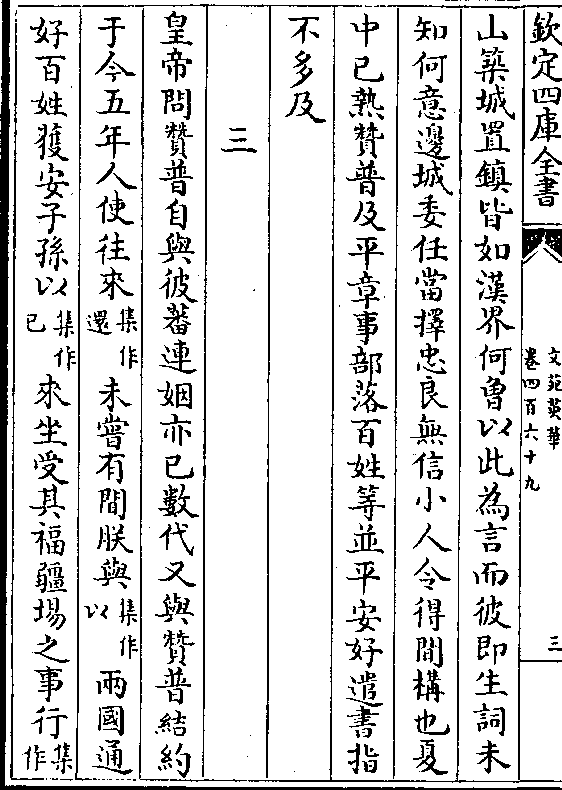 欽定四庫全書
文苑英華
卷四百六十九
三
山築城置鎮皆如漢界何曾以此為言而彼即生詞未
知何意邊城委任當擇忠良無信小人令得間構也夏
中已熱贊普及平章事部落百姓等並平安好遣書指
不多及
三
皇帝問贊普自與彼蕃連姻亦已數代又與贊普結約
于今五年人使往來集作還未嘗有間朕與集作以兩國通
好百姓獲安子孫以集作已來坐受其福疆埸之事行集作